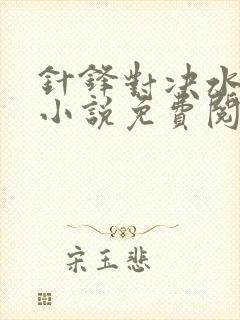 針鋒對决水
小說免費閱
宋玉悲